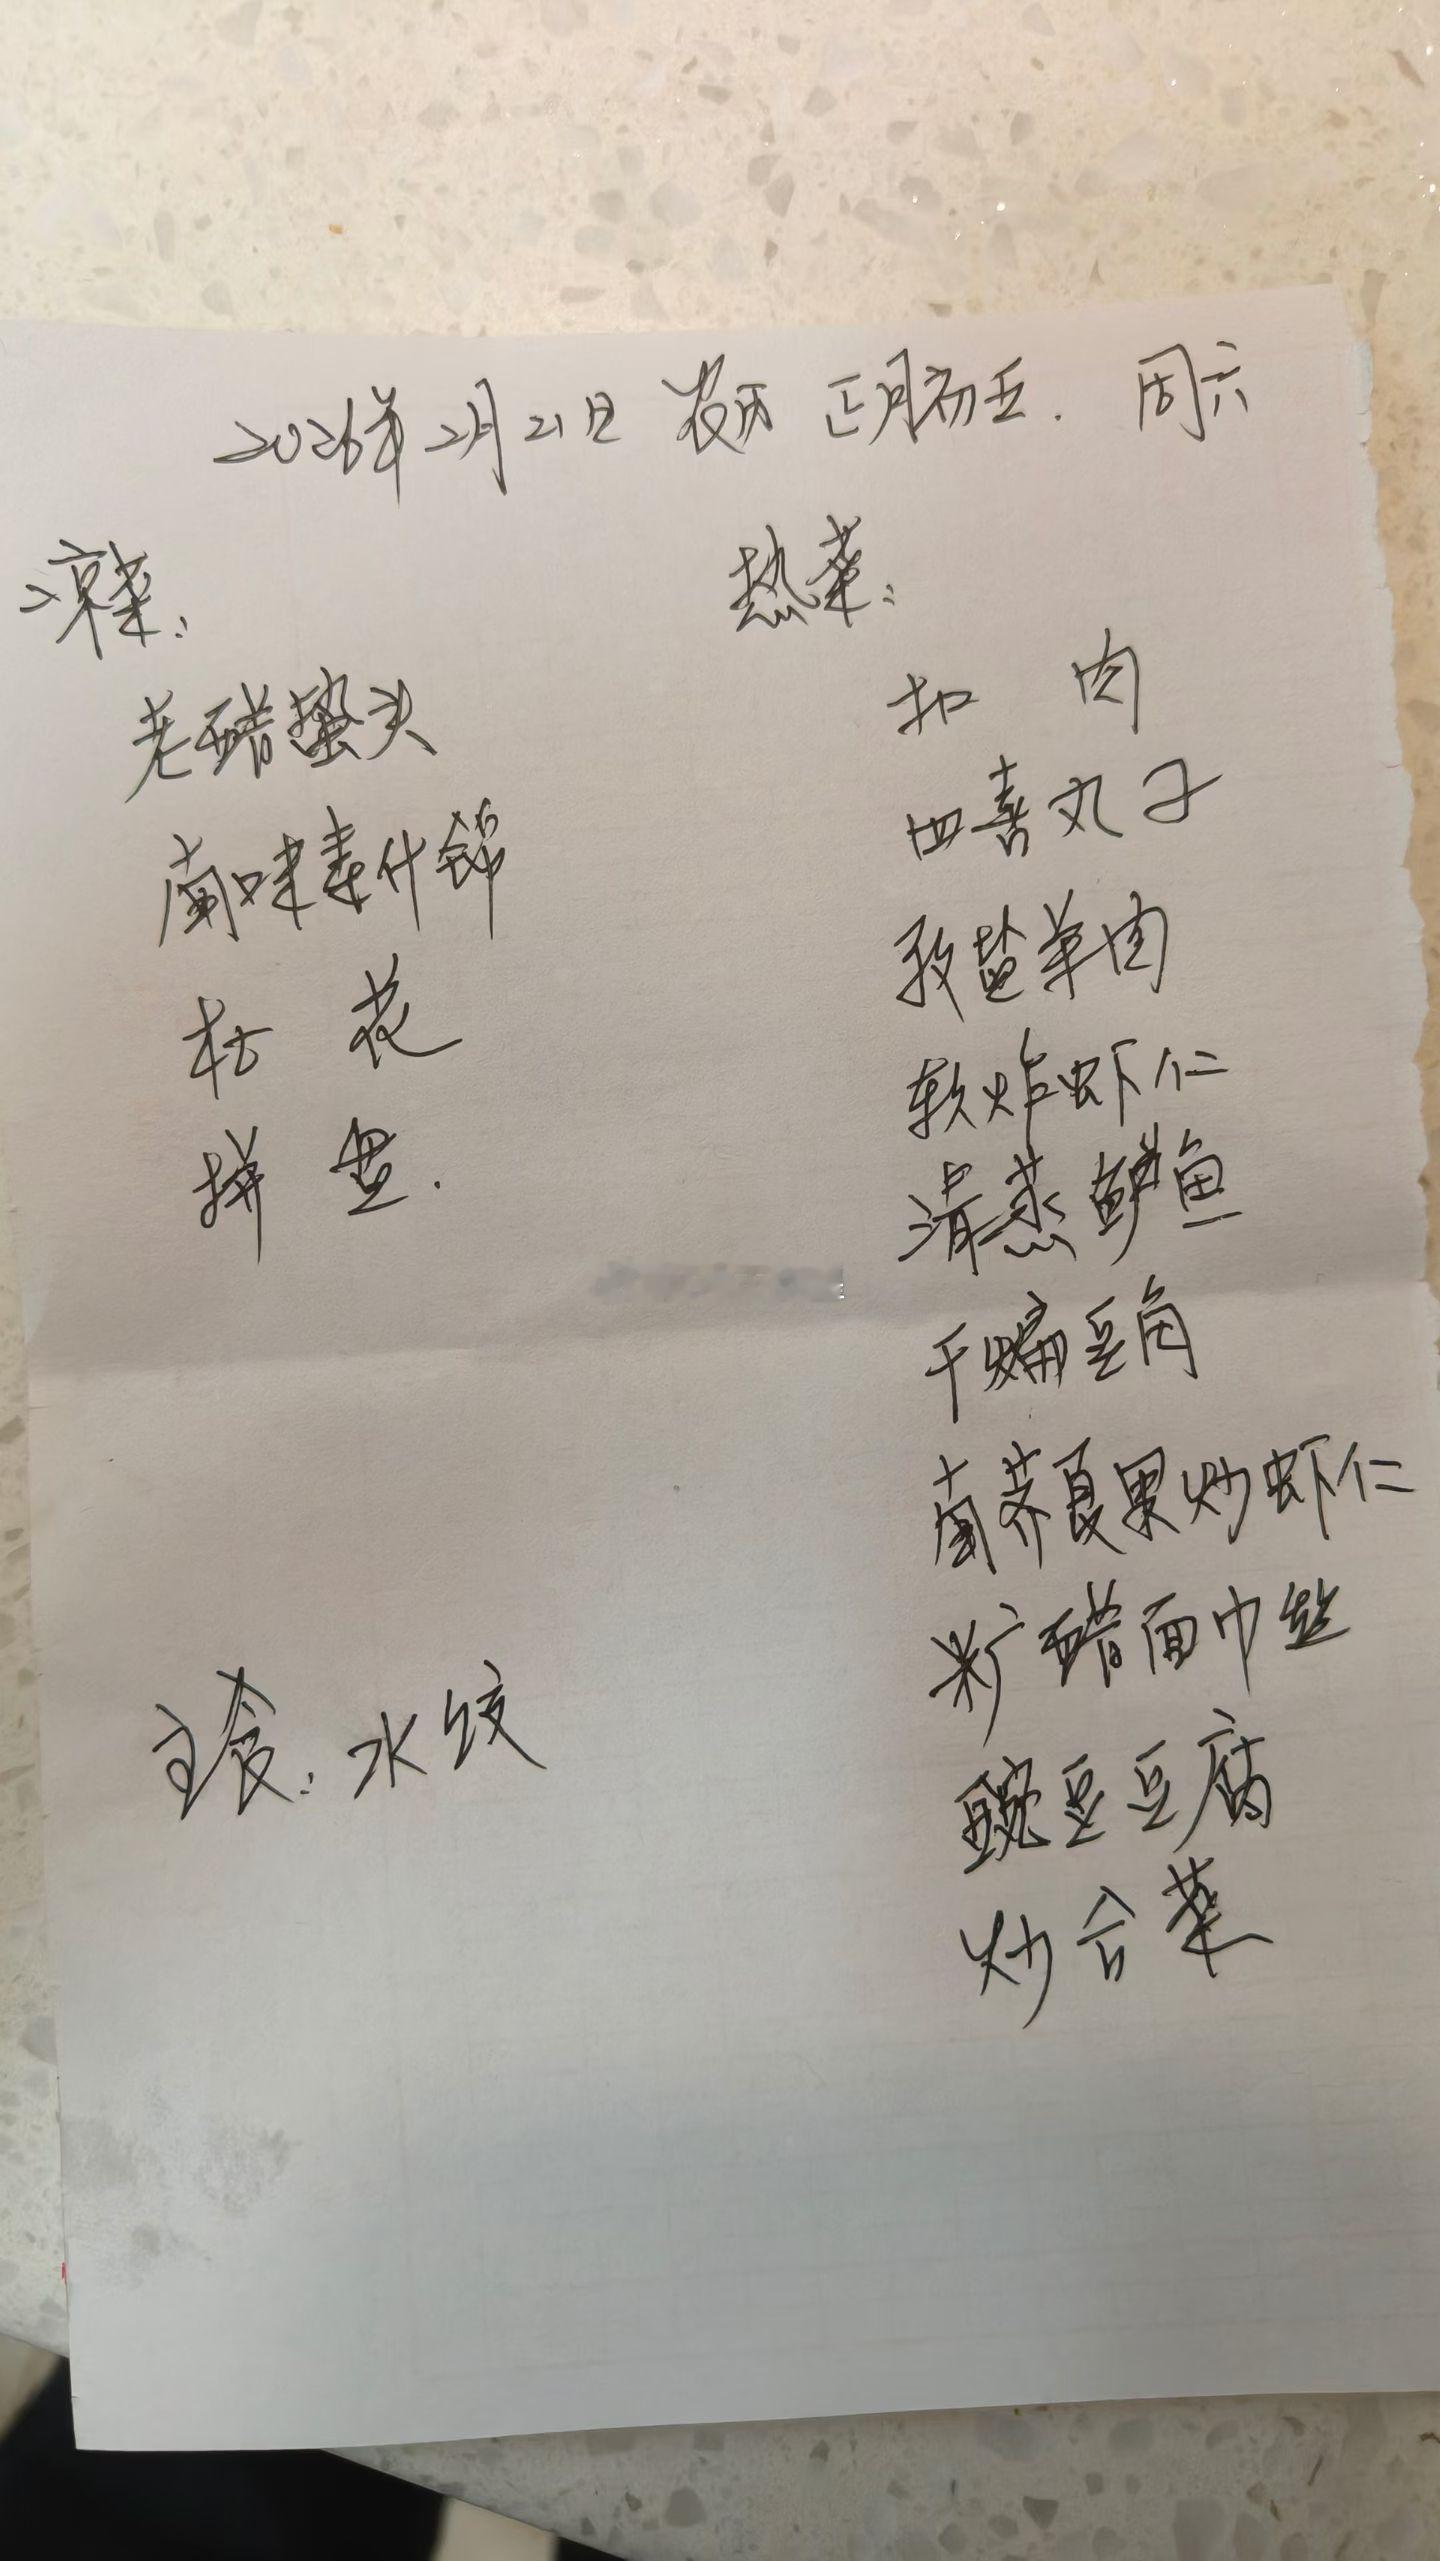 2026年2月21日 农历 正月初五. 周六
凉菜:
老醋蜇头
南味素什锦
松花
拼盘.
主食: 水饺
热菜:
扣肉
四喜丸子
孜盐羊肉
软炸虾仁
清蒸鲈鱼
干煸豆角
南荠夏果炒虾仁
糖醋面巾丝
豌豆豆腐
炒合菜